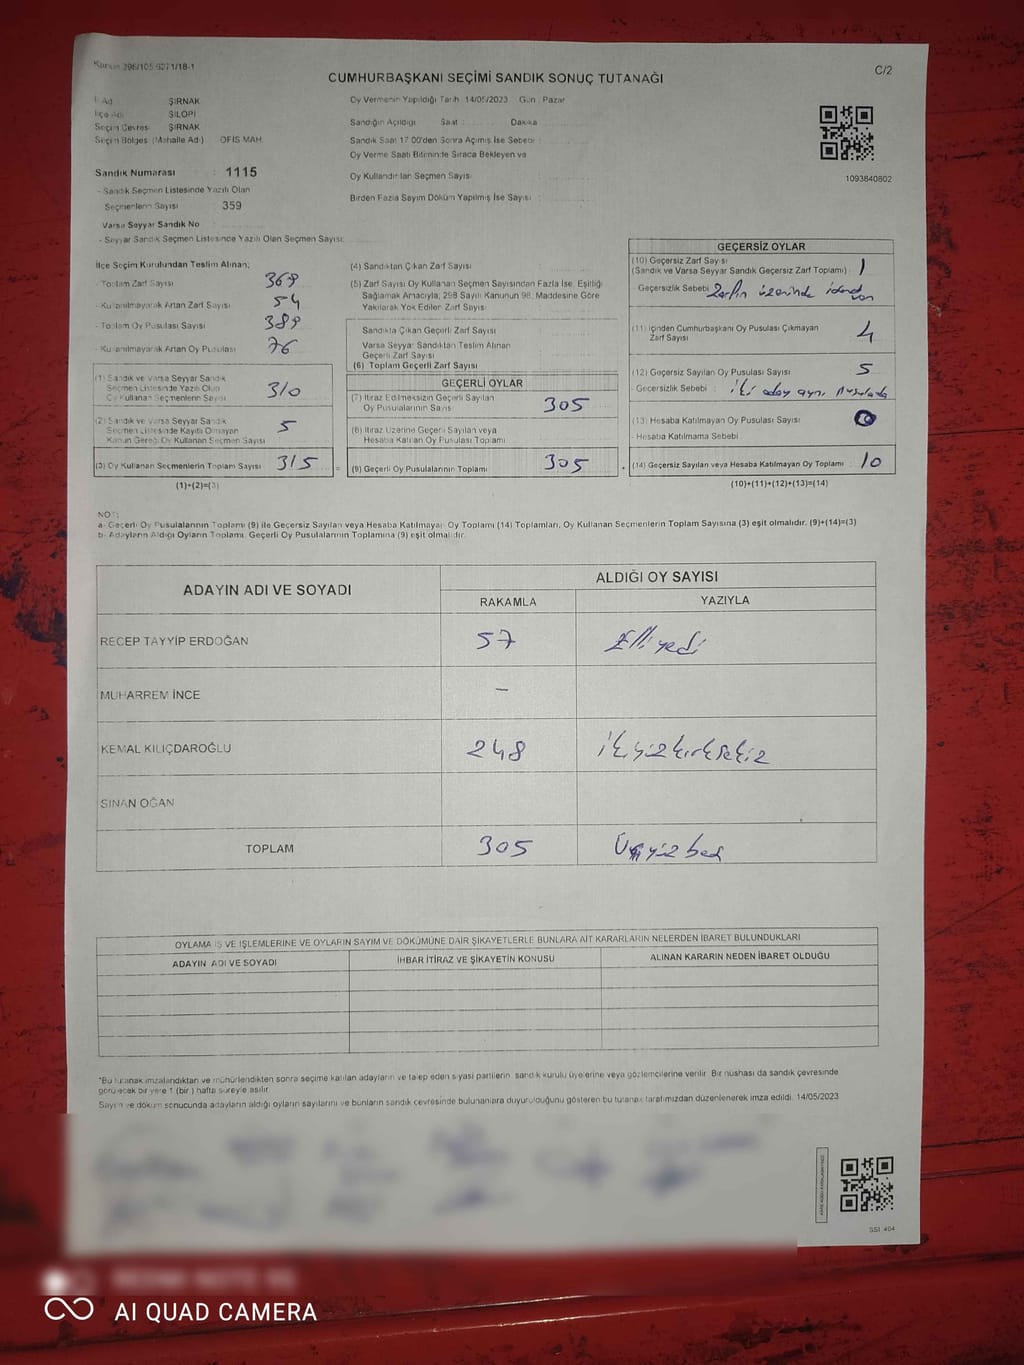 Kanun 298/105 6271/18-1
C/2
CUMHURBAŞKANI SEÇİMİ SANDIK SONUÇ TUTANAĞI
İl Adı ŞIRNAK
İlçe Adı SİLOPİ
Seçim Çevresi ŞIRNAK
Seçim Bölgesi (Mahalle Adı) OFİS MAH.
Sandık Numarası : 1115
- Sandık Seçmen Listesinde Yazılı Olan
Seçmenlerin Sayısı 359
Varsa Seyyar Sandık No
- Seyyar Sandık Seçmen Listesinde Yazılı Olan Seçmen Sayısı:
Oy Vermenin Yapıldığı Tarih 14/05/2023 Gün : Pazar
Sandığın Açıldığı Saat : Dakika
Sandık Saat 17:00'den Sonra Açılmış İse Sebebi :
Oy Verme Saati Bitiminde Sırada Bekleyen ve
Oy Kullandırılan Seçmen Sayısı
Birden Fazla Sayım Döküm Yapılmış İse Sayısı :
1093840802
İlçe Seçim Kurulundan Teslim Alınan;
- Toplam Zarf Sayısı 369
- Kullanılmayarak Artan Zarf Sayısı 54
- Toplam Oy Pusulası Sayısı 389
- Kullanılmayarak Artan Oy Pusulası 76
(1) Sandık ve Varsa Seyyar Sandık
Seçmen Listesinde Yazılı Olup
Oy Kullanan Seçmenlerin Sayısı 310
(2) Sandık ve Varsa Seyyar Sandık
Seçmen Listesinde Kayıtlı Olmayan
Kanun Gereği Oy Kullanan Seçmen Sayısı 5
(3) Oy Kullanan Seçmenlerin Toplam Sayısı 315 =
(1)+(2)=(3)
(4) Sandıktan Çıkan Zarf Sayısı
(5) Zarf Sayısı Oy Kullanan Seçmen Sayısından Fazla İse, Eşitliği
Sağlamak Amacıyla, 298 Sayılı Kanunun 98. Maddesine Göre
Yakılarak Yok Edilen Zarf Sayısı
Sandıkta Çıkan Geçerli Zarf Sayısı
Varsa Seyyar Sandıktan Teslim Alınan
Geçerli Zarf Sayısı
(6) Toplam Geçerli Zarf Sayısı
GEÇERLİ OYLAR
(7) İtiraz Edilmeksizin Geçerli Sayılan
Oy Pusulalarının Sayısı 305
(8) İtiraz Üzerine Geçerli Sayılan veya
Hesaba Katılan Oy Pusulası Toplamı
(9) Geçerli Oy Pusulalarının Toplamı 305 +
GEÇERSİZ OYLAR
(10) Geçersiz Zarf Sayısı
(Sandık ve Varsa Seyyar Sandık Geçersiz Zarf Toplamı) : 1
- Geçersizlik Sebebi Zarfın üzerinde
(11) İçinden Cumhurbaşkanı Oy Pusulası Çıkmayan
Zarf Sayısı 4
(12) Geçersiz Sayılan Oy Pusulası Sayısı 5
- Geçersizlik Sebebi : iki aday aynı pusulada
(13) Hesaba Katılmayan Oy Pusulası Sayısı 0
- Hesaba Katılmama Sebebi
(14) Geçersiz Sayılan veya Hesaba Katılmayan Oy Toplamı : 10
(10)+(11)+(12)+(13)=(14)
NOT:
a- Geçerli Oy Pusulalarının Toplamı (9) ile Geçersiz Sayılan veya Hesaba Katılmayan Oy Toplamı (14) Toplamları, Oy Kullanan Seçmenlerin Toplam Sayısına (3) eşit olmalıdır. (9)+(14)=(3)
b- Adayların Aldığı Oyların Toplamı, Geçerli Oy Pusulalarının Toplamına (9) eşit olmalıdır.
ADAYIN ADI VE SOYADI ALDIĞI OY SAYISI
RAKAMLA YAZIYLA
RECEP TAYYİP ERDOĞAN 57 Elli yedi
MUHARREM İNCE –
KEMAL KILIÇDAROĞLU 248 ikiyüzkırksekiz
SİNAN OĞAN
TOPLAM 305 Üçyüz beş
OYLAMA İŞ VE İŞLEMLERİNE VE OYLARIN SAYIM VE DÖKÜMÜNE DAİR ŞİKAYETLERLE BUNLARA AİT KARARLARIN NELERDEN İBARET BULUNDUKLARI
ADAYIN ADI VE SOYADI İHBAR İTİRAZ VE ŞİKAYETİN KONUSU ALINAN KARARIN NEDEN İBARET OLDUĞU
*Bu tutanak imzalandıktan ve mühürlendikten sonra seçime katılan adayların ve talep eden siyasi partilerin, sandık kurulu üyelerine veya gözlemcilerine verilir. Bir nüshası da sandık çevresinde
görülecek bir yere 1 (bir) hafta süreyle asılır.
Sayım ve döküm sonucunda adayların aldığı oyların sayılarını ve bunların sandık çevresinde bulunanlara duyurulduğunu gösteren bu tutanak tarafımızdan düzenlenerek imza edildi. 14/05/2023
SSİ: 404
AI QUAD CAMERA